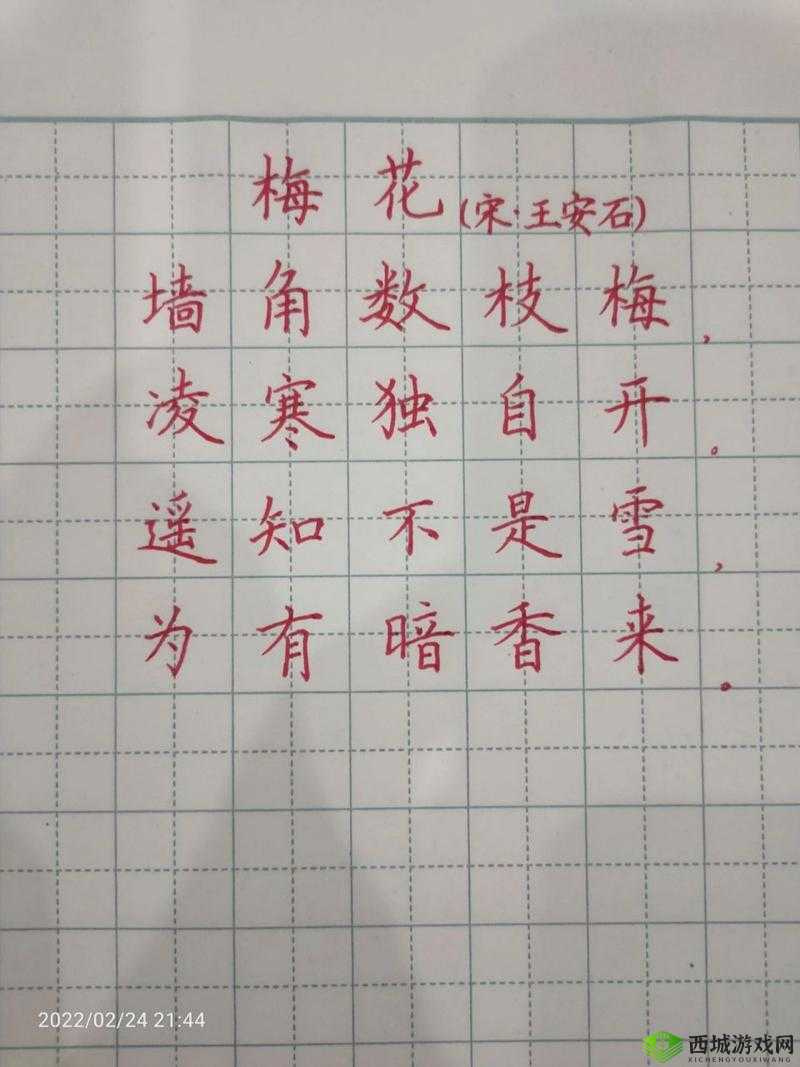 梅花(宋·王安石)
墙角数枝梅,
凌寒独自开。
遥知不是雪,
为有暗香来。
2022/02/24 21:44
西城游戏网
XICHENGYOUXIWANG